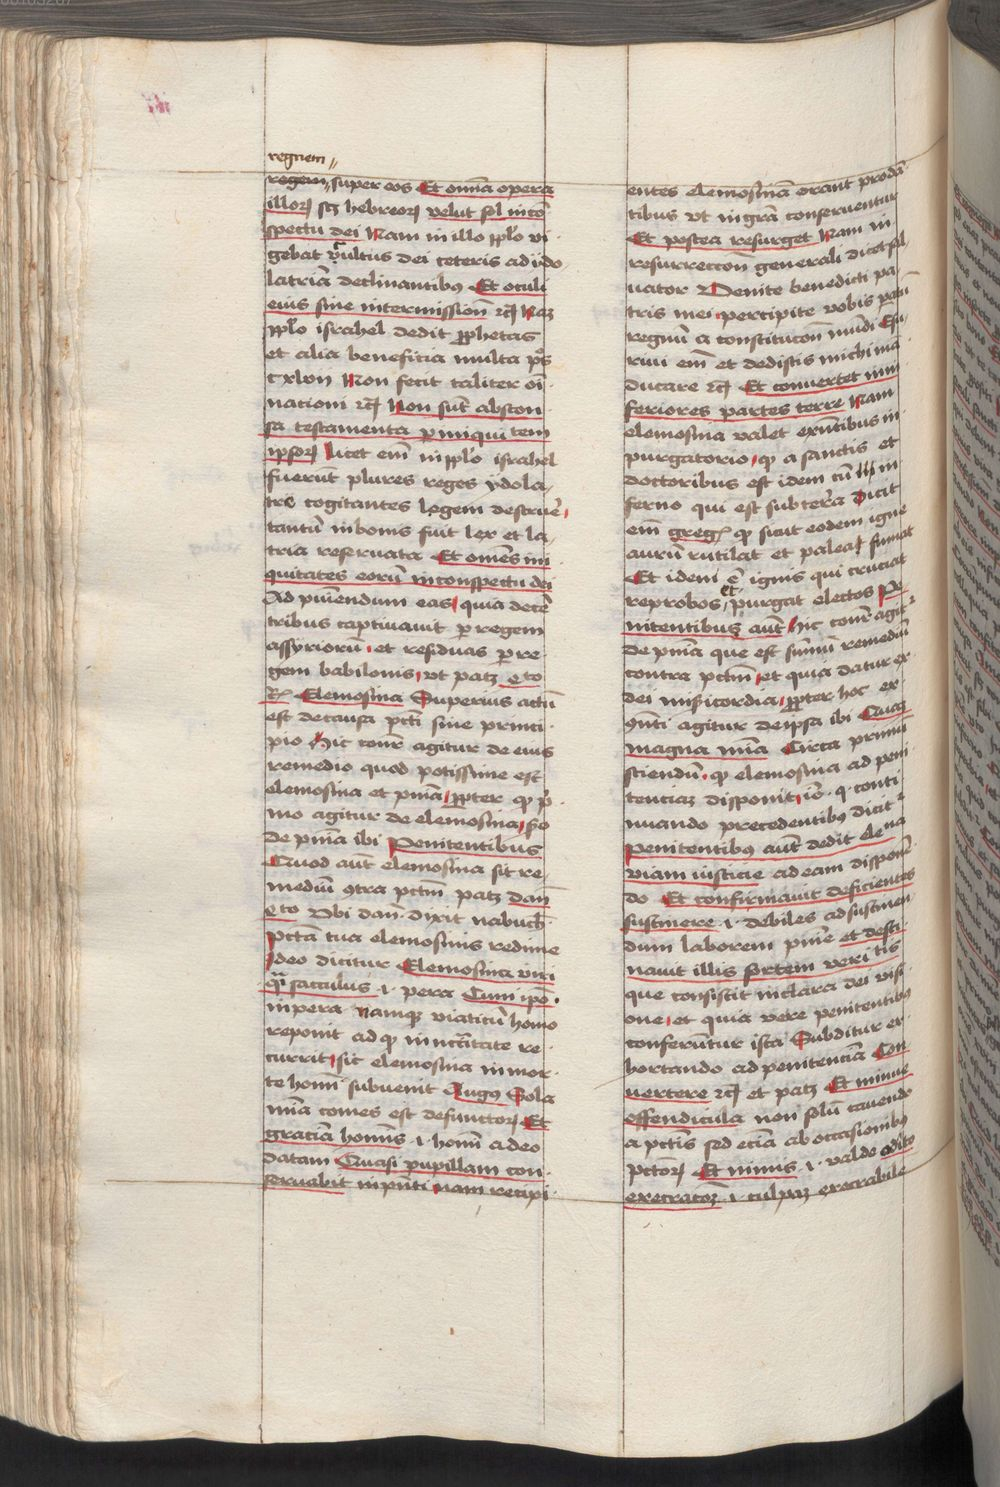 regnem
regem super eos Et omnia opera
illoꝝ scꝫ hebreoꝝ velut sol in cō
spectu dei Nam in illo pplo vi
gebat cultus dei ceteris ad ido
latriā declinantibus Et oculi
eius sine intermissiōn rcꝭ Naꝫ
pplo israhel dedit prophetas
et alia beneficia multa ps
cxlvii Non fecit taliter oī
nacioni rcꝭ Non sūt abscon
sa testamenta per iniquitem
ipsoꝝ licet em̄ in pplo israhel
fuerūt plures reges ydola
tre cogitantes legem destruē
tantū in bonis fuit lex et la
tria reseruata Et om̄es ini
quitates eorū in conspectu dei
Ad puniendum eas quia decē
tribus captiuauit per regem
assyriorū et residuas per re
gem babilonis vt patꝫ
Elemosina Superius actū
est de causa pctī sine princi
pio Hic cōnr agitur de eius
remedio quod potissime est
elemosina et pnīa ppter qꝫ pͥ
mo agitur de elemosina scdo
de pnīa ibi Penitentibus
Quod aūt elemosina sit re
mediū ꝯtra pctm̄ patꝫ dan̄
Vbi dan̄ dixit nabuch
Pctā tua elemosinis redime
Ideo dicitur Elemosina viri
qͣsi sacculus .i. pera Cum ipō
in pera namqꝫ viaticū homo
reponit ad qd in ncc̄itate re
currit sic elemosina in mor
te homī subuenit Augꝰ Sola
mīa comes est defunctoꝝ Et
graciā hom̄īs .i. homī a deo
datam Quasi pupillam con
seruabit in pn̄ti nam recipi
entes elemosinam orant pro dā
tibus vt in grā conseruentur
Et postea resurget Nam in
resurrecciōn generali dicet sal
uator Venite benedicti pa
tris mei percipite vobis paratū
regnū a constituciōn mundi Esu
riui em̄ et dedistis michi mā
ducare rcꝭ Et conuertet in in
feriores partes terre Nam
elemosina valet exn̄tibus in
purgatorio qd a sanctis et
doctoribus est idem cū in
ferno qui est sub terra Dicit
em̄ greg qd sicut eodem igne
aurū rutilat et palea fumat
Et idem ē ignis qui cruciat
reprobos et purgat electos Pe
nitentibus aūt Hic cōnr agitr
de pnīa que est sūmū remediū
contra pctm̄ et quia datur ex
dei misericordia ppter hoc ex
ꝯn̄ti agitur de ipsa ibi Quaꝫ
magna mīa Circa primū
sciendū qd elemosina ad peni
tenciaꝫ disponit io q conti
nuando precedentibus dicit
Penitentibus aūt dedit ele na
viam iusticie ad eam disponē
do Et confirmauit deficientes
sustinere .i. debiles ad sustinen
dum laborem pnīe et desti
nauit illis sortem veri tis
que consistit in clara dei visi
one et quia vere penitentibus
conferuntur ista Subditur ex
hortando ad penitenciā Con
vertere rcꝭ et patꝫ Et minue
offendicula non solū cauendo
a pctīs sed eciā ab occasionibus
pctoꝝ Et nimis .i. valde odito
execratoꝫ .i. culpaꝫ execrabilē